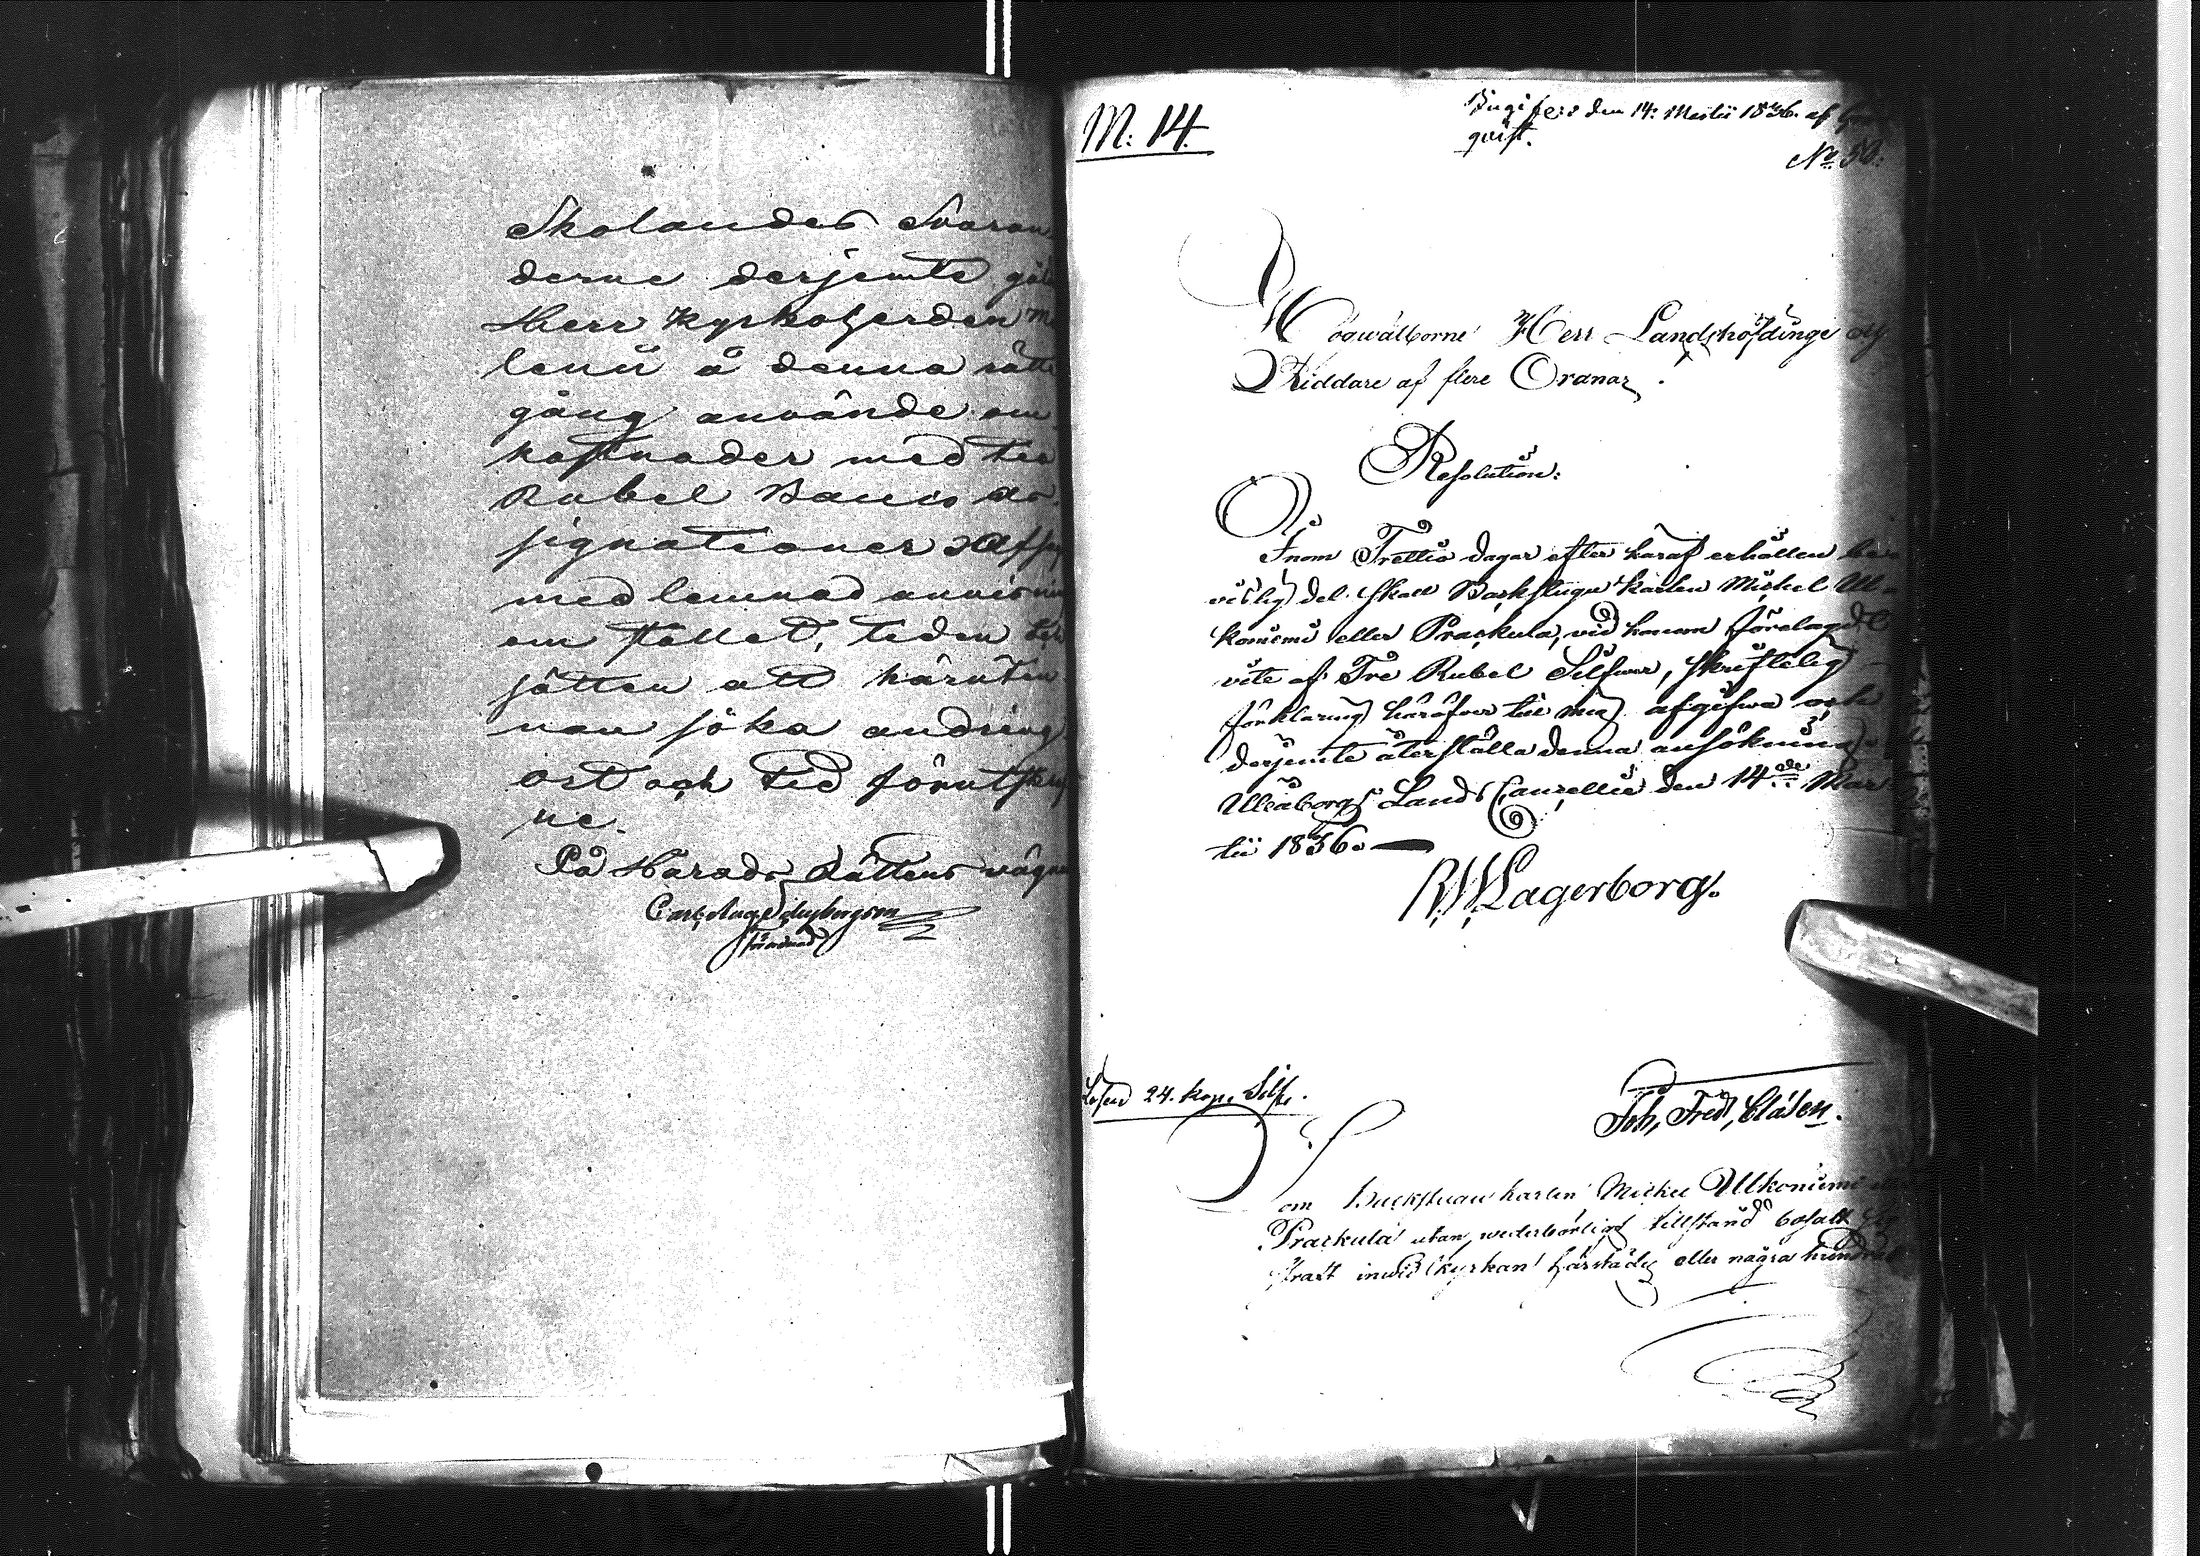 Skolandes Svaran
derne derjemte
Herr Kyrkoherden
lenii å denna rätte
gång använde om
kostnader med tio
Rubel Banco as
signationer
med lemnad anvisning
om stället, tiden
sätten att härutin
nan söka ändring
ort och tid förutskrif
ne.
På Härads Rättens vägnar
Carl Aug
M: 14.
Ingifven den 14: Martii 1836. af
qvist.
No 50.
Högwälborne Herr Landshöfdinge och
Riddare af flere Ordnar.
Resolution:
Inom Trettio dagar efter häraf erhållen be
vislig del skall Backstugu karlen Michel Ul-
koniemi eller Prackula, vid honom förelagdt
vite af Tre Rubel Silfwer, skriftelig
förklaring häröfver till mig afgifwa och
derjemte återställa denna ansökning.
Uleåborgs Lands Cancellie den 14de Mar
tii 1836.
R W Lagerborg.
Lösen 24. kop. Silfr.
Joh, Fred, Clásen.
Som Backstugu karlen Michel Ulkoniemi
Prackula utan wederbörligt tillstånd bosatt sig
strax inwid kyrkan härstädes eller några hundrade